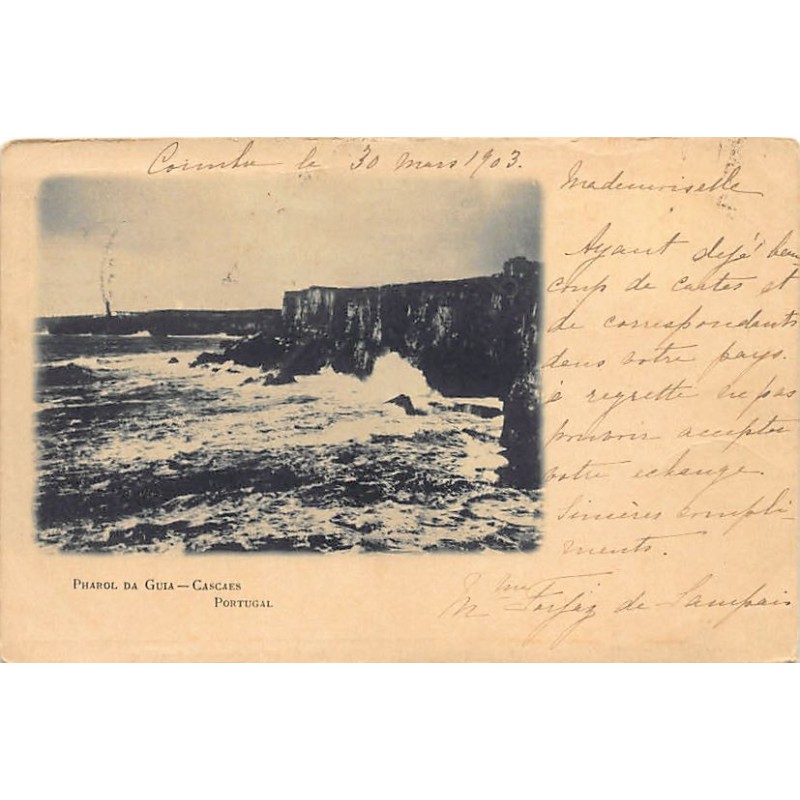 Coimbra le 30 Mars 1903.
Mademoiselle
Ayant dejá beau
coup de cartes et
de correspondants
dans votre pays.
é regrette ne pas
pouvoir accepter
votre echange.
Sincères compli-
ments.
Mme Forjaz de Sampaio
PHAROL DA GUIA — CASCAES
PORTUGAL